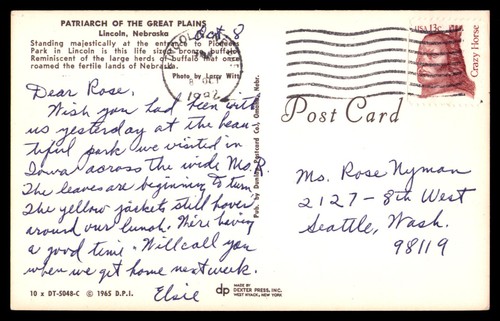 PATRIARCH OF THE GREAT PLAINS
Lincoln, Nebraska
Standing majestically at the entrance to Pioneers
Park in Lincoln is this life sized bronze buffalo
Reminiscent of the large herds of buffalo that once
roamed the fertile lands of Nebraska.
Photo by Larry Witt
Oct 8
8 OCT
1992
USA 13c
Crazy Horse
Post Card
Dear Rose,
Wish you had been with
us yesterday at the beau-
tiful park we visited in
Iowa across the wide Ms. R.
The leaves are beginning to turn.
The yellow jackets still hover
around our lunch. We're having
a good time. Will call you
when we get home next week.
Elsie
Ms. Rose Nyman
2127 - 8th West
Seattle, Wash.
98119
Pub. by Dunlap Postcard Co., Omaha, Nebr.
10 x DT-5048-C © 1965 D.P.I.
dp MADE BY DEXTER PRESS, INC.
WEST NYACK, NEW YORK